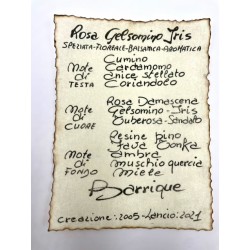 Rosa Gelsomino Iris
SPEZIATA-FLOREALE-BALSAMICA-AROMATICA
Cumino
Note Cardamomo
di anice stellato
TESTA Coriandolo
Rosa Damascena
Note Gelsomino-Iris
di Tuberosa-Sandalo
CUORE
Resine pino
Note Fava Tonka
di ambra
FONDO muschio quercia
miele
Barrique
Creazione:2005-Lancio:2021